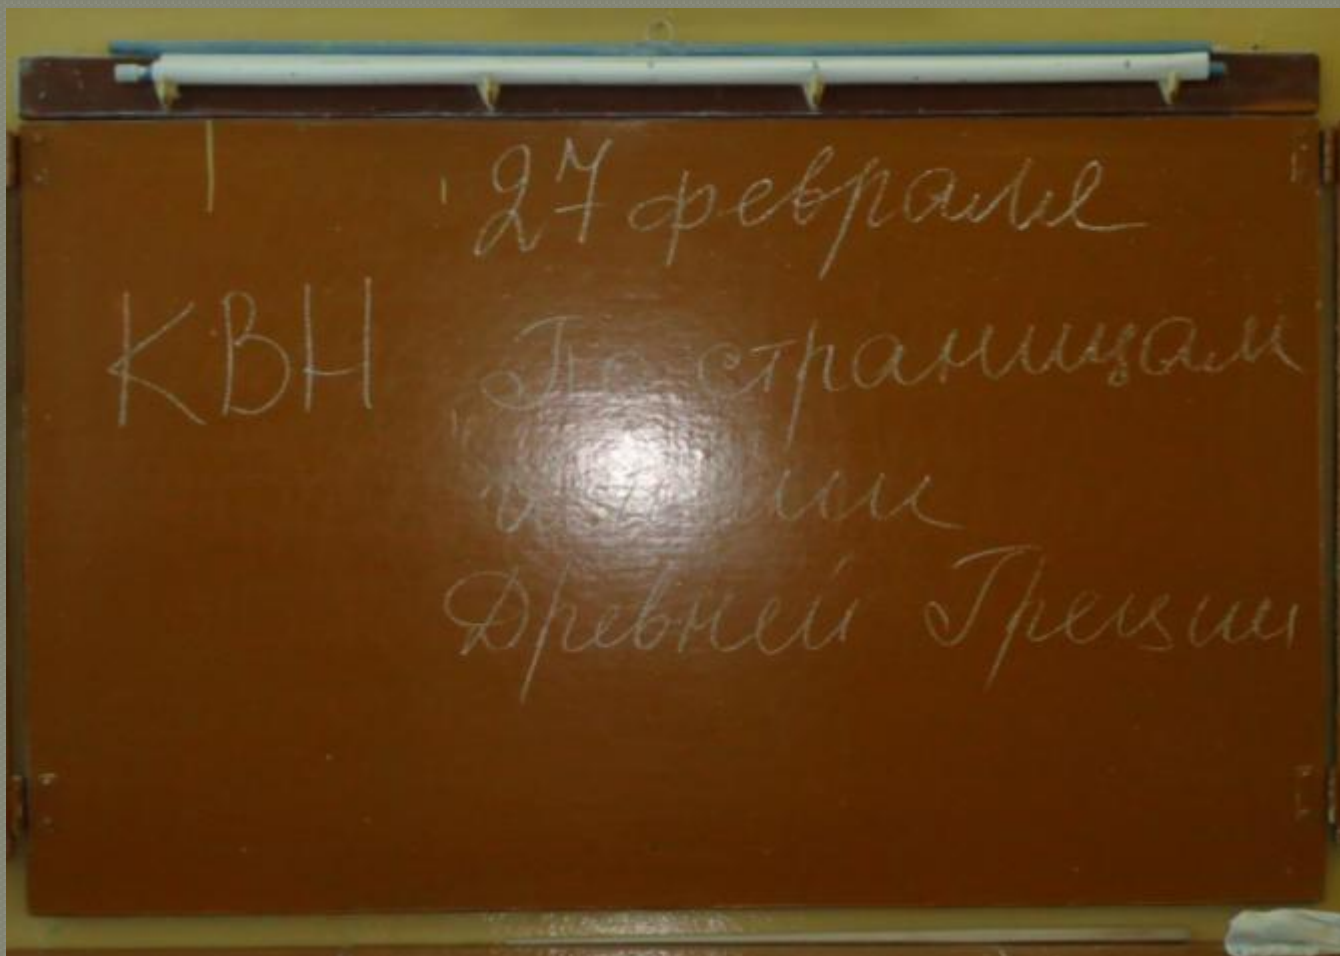 27 февраля
КВН По страницам
Древней Греции